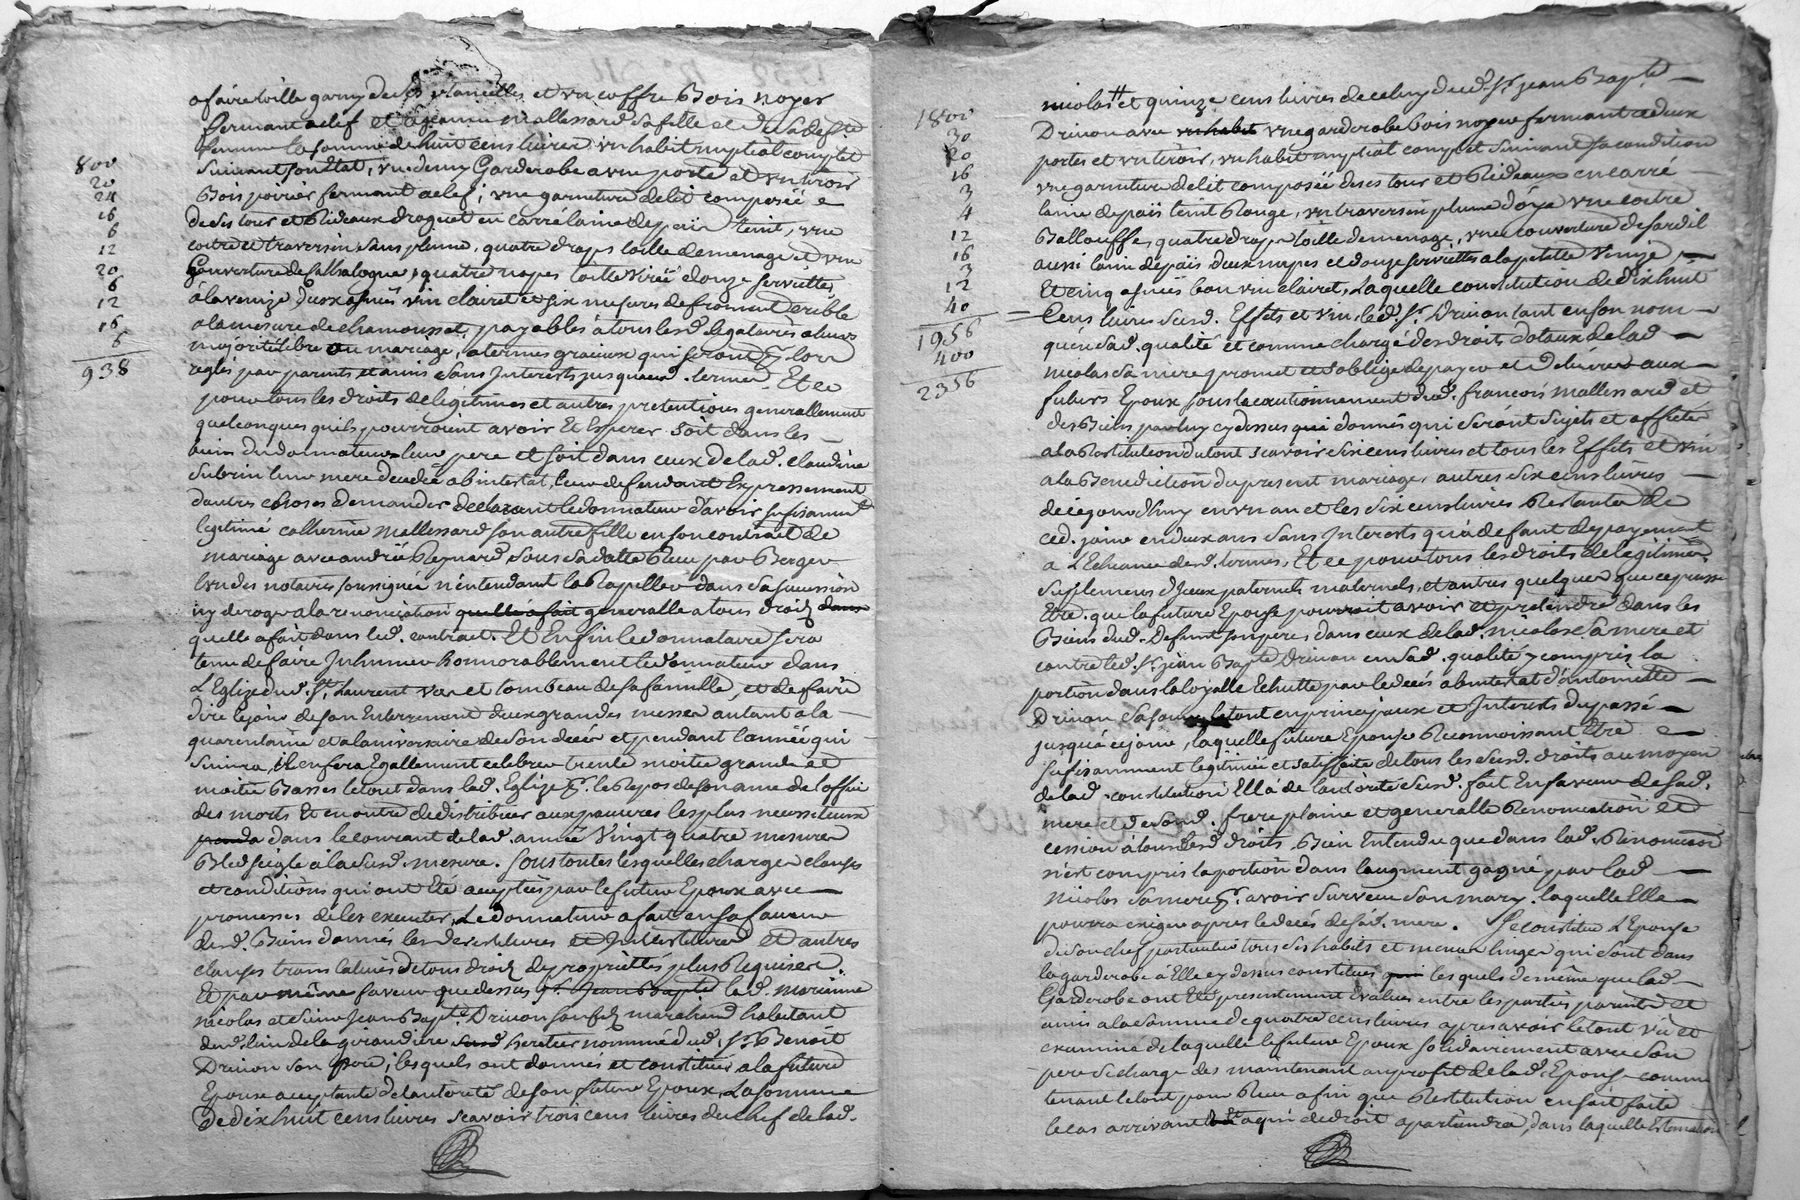 a faire toille garny de ses et un coffre Bois noyer
fermant a clef et a jeanne mallessard sa fille et de sade
femme la somme de huit cens livres, un habit nuptial complet
suivant son Etat, une demy Garderobe a une porte et un tiroir
Bois poirier fermant a clef, une garniture de lit composéé
de ses tour et Rideaux droguet en carré laine de païs teint, une
coitre et traversin sans plume, quatre draps toille de menage et une
Couverture de Cathalogne, quatre napes toille douze serviettes
a la venize, deux asnées vin clairet et six mesures de froment crible
a la mesure de chamousset, payables a tous lesd. legataires a leurs
majorité libre ou mariage, a termes gracieux qui seront p. lors
reglés par parents et amis sans Interests jusqu'aux . termes. Et ce
pour tous les droits de legitimes et autres pretentions generallement
quelconques qu'ils pourroient avoir Et Esperer soit dans les
biens dud. donnateur leur pere et soit dans ceux de lad. claudine
Subrin leur mere decedée ab intestat, leur defendant Expressement
d'autres choses demander declarant le donnateur d'avoir sufisament
legitimé catherine mallessard son autre fille en son contrait de
mariage avec andré Reynard sous sa datte Reçu par Berger
l'un des notaires soussignés n'entendant la Rapeller dans sa sucession
ny deroger a la renonciation quelle a fait generalle a tous droits dans
quelle a fait dans led. contract. Et Enfin le donnataire sera
tenu de faire Inhumer honnorablement le donnateur dans
L'Eglize dud. St. Laurent vau et tombeau de sa famille, et de faire
dire le jour de son Enterrement deux grandes messes autant a la
quarantaine et a l'aniversaire de son deces et pendant l'année qui
suivra, il en fera Egallement celebrer trente moitié grande et
moitié Basses le tout dans lad. Eglize pr. le Repos de son ame de l'office
des morts Et en outre de distribuer aux pauvres les plus necessiteux
dans le courant de lad. année Vingt quatre mesures
Bled seigle a la susd. mesure. Sous toutes lesquelles charges clauses
et conditions qui ont Eté acceptées par le futur Epoux avec
promesses de les executer, Le donnateur a fait en sa faveur
desd. Biens donnés les devestitures et Investitures Et autres
clauses translatives de tous droits de proprietté plus Requises.
Et par même faveur que dessus Sr. Jean Bapte lad. marianne
nicolas et sieur Jean Bapte. Drivon son fils marchand habitant
dud. lieu de la giraudiere heretier nommé dud. Sr. Benoît
Drivon son Pere, lesquels ont donnés et constitués a la future
Epouse acceptante de l'autorité de son futur Epoux, La somme
De dix huit cens livres scavoir trois cens livres du chef de lad.
800
20
24
16
6
12
20
6
12
16
6
938
nicolas et quinze cens livres de celuy dud. Sr. jean Bapte.
Drivon avec un habit une garderobe bois noyer fermant a deux
portes et un tiroir, un habit nuptial complet suivant sa condition
une garniture de lit composéé de ses tour et Rideaux en carré
laine de païs teint Rouge, un traversin plume d'oye une coitre
Ballouffe, quatre draps toille de menage, une couverture de
aussi laine de païs deux napes et douze serviettes a la petite Venize
Et cinq asnées bon vin clairet, Laquelle constitution de dix huit
Cens livres susd. Effets et vin, led. Sr. Drivon tant en son nom
qu'en sad. qualité et comme chargé des droits dotaux de lad.
nicolas sa mere promet et s'oblige de payer et delivrer aux
futurs Epoux sous le cautionnement dud. francois mallessard et
des Biens par luy cy dessus donnés qui seront sujets et affectés
a la Restitution du tout scavoir six cens livres et tous les Effets et vin
a la Benediction du present mariage, autres six cens livres
de ce jourd'huy en un an et les six cens livres Restantes de
ced. jour en deux ans sans Interests qu'a defaut de payement
a L'Echeance desd. termes, Et ce pour tous les droits de legitimes
suplemens d'Iceux paternels maternels, et autres quelques que ce puisse
Etre que la future Epouse pourroit avoir et pretendre dans les
Biens dud. Defunt son pere dans ceux de lad. nicolas sa mere et
contre led. Sr. jean Bapte. Drivon en sad. qualité y compris la
portion dans la loyalle Echutte par le deces ab intestat d'antoinette
Drivon sa soeur le tout en principaux et Interests du passé
jusqu'a ce jour, laquelle future Epouse Reconnoissant Etre
sufisamment legitimée et satisfaite de tous les susd. droits au moyen
de lad. constitution Ell'a de l'autorité susd. fait En faveur de sad.
mere et de sond. frere plaine et generalle Renonciation et
cession a tous lesd. droits Bien Entendu que dans lad. Renonciation
n'est compris la portion dans l'augment gagné par lad.
Nicolas sa mere pr. avoir survécu son mary. laquelle Elle
pourra exiger apres le deces de sad. mere. Se constitue L'Epouse
de son chef particulier tous ses habits et menus linges qui sont dans
la garderobe a Elle cy dessus constituée lesquels de même que lad.
Garderobe ont Eté presentement Evalués entre les parties parents et
amis a la somme de quatre cens livres apres avoir le tout vû et
examiné de laquelle le futur Epoux solidairement avec son
pere se charge des maintenant au profit de lad. Epouse comme
tenant le tout pour Reçu afin que Restitution en soit faite
le cas arrivant a qui de droit apartiendra, dans laquelle Estimation
1800
30
20
16
3
4
12
16
3
12
40
1956
400
2356